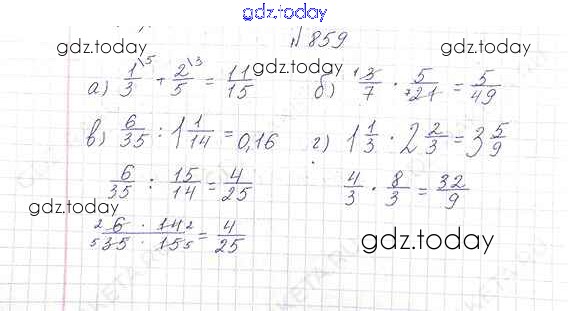 gdz.today
№859
gdz.today
gdz.today
а) 1/3 \5 + 2/5 \3 = 11/15 б) 1 3/7 · 5/21 7 = 5/49
в) 6/35 : 1 1/14 = 0,16 г) 1 1/3 · 2 2/3 = 3 5/9
6/35 : 15/14 = 4/25 4/3 · 8/3 = 32/9
gdz.today
2 6 · 14 2 / 5 35 · 15 5 = 4/25
gdz.today